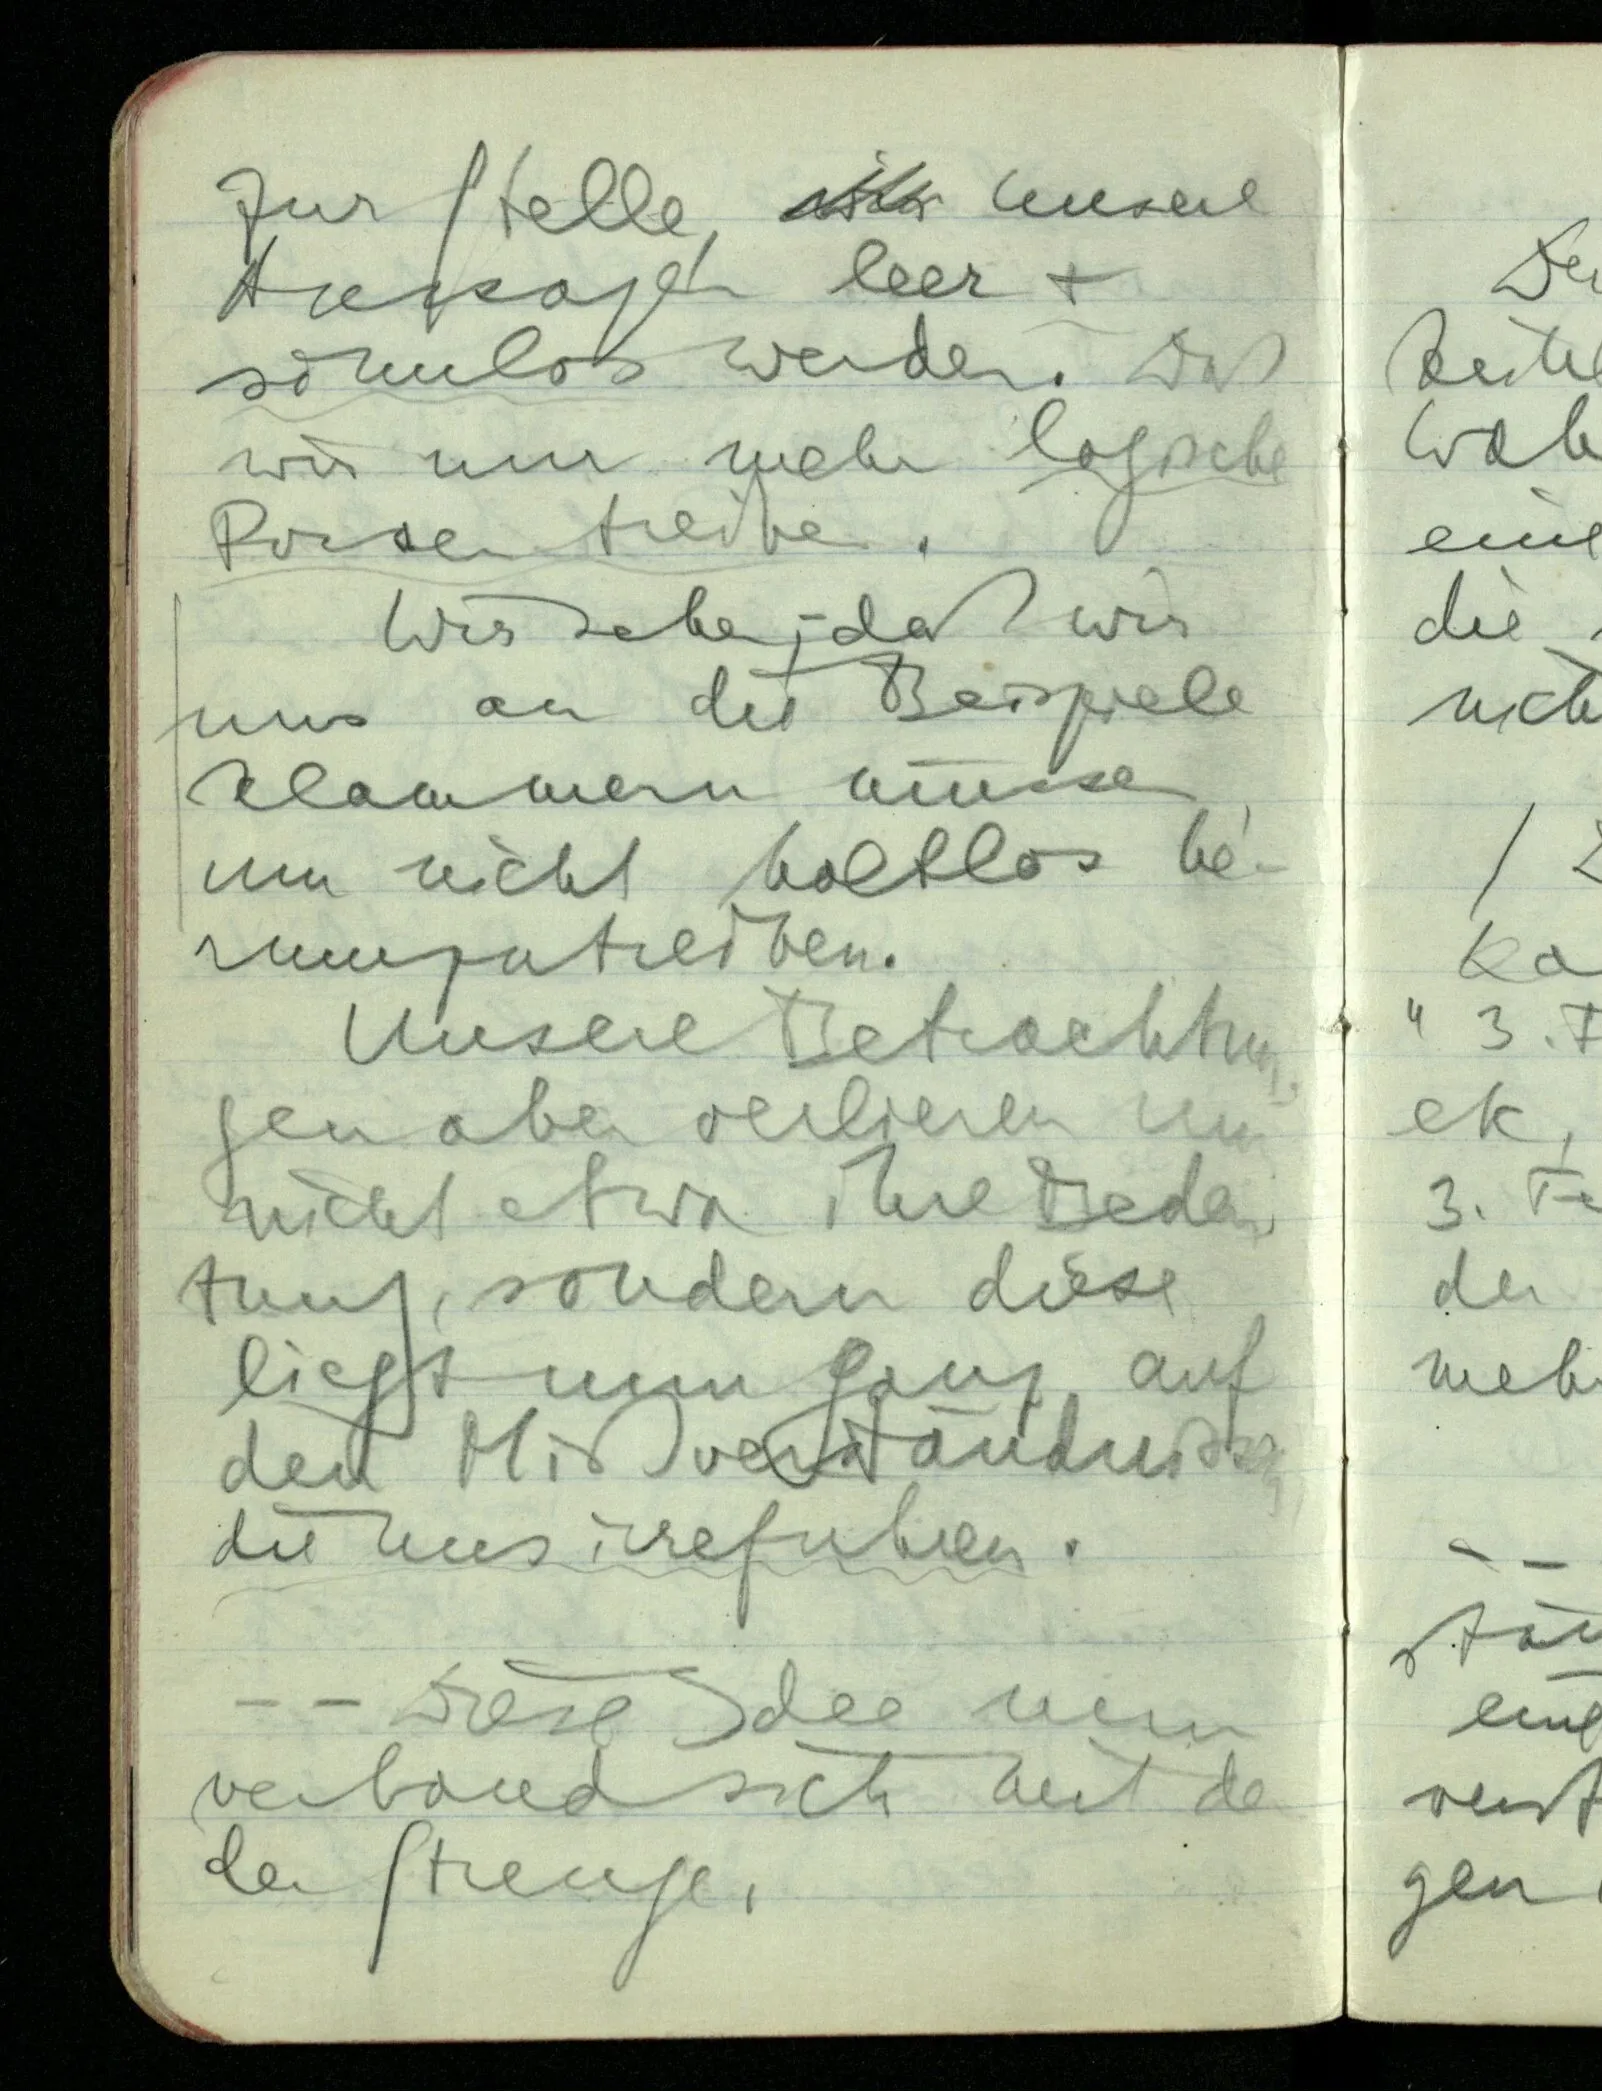 zur Stelle, unsere
Aussagen leer +
sinnlos werden. Daß
wir nur mehr logische
Possen treiben.
Wir sehen, daß wir
uns an die Beispiele
klammern müssen
um nicht haltlos he-
rumzutreiben.
Unsere Betrachtun-
gen aber verlieren nun
nicht etwa ihre Bedeu-
tung, sondern diese
liegt nun ganz auf
den Mißverständnissen
die uns irreführen.
– – Diese Idee nun
verband sich mit de
der Strenge,
De
die
nicht
/
Ka
" 3. F
ek,
3. Fe
der
mehr
– –
gen